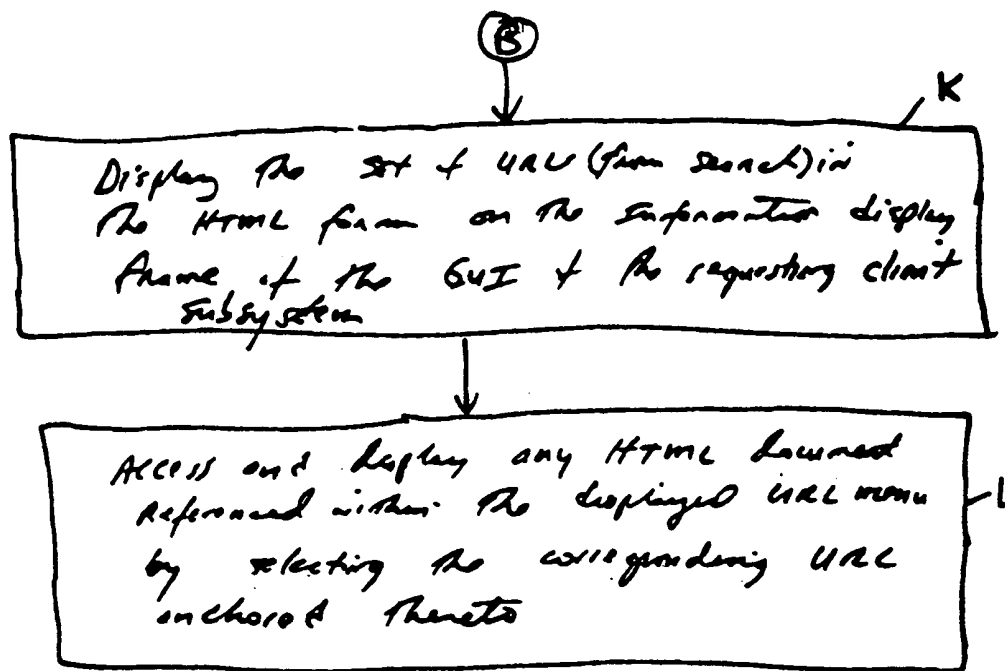 B
K
Display the set of URLs (from search) in
the HTML form on the Information display
frame of the GUI of the requesting client
subsystem
Access and display any HTML document
referenced within the displayed URL menu
L
by selecting the corresponding URL
anchored thereto